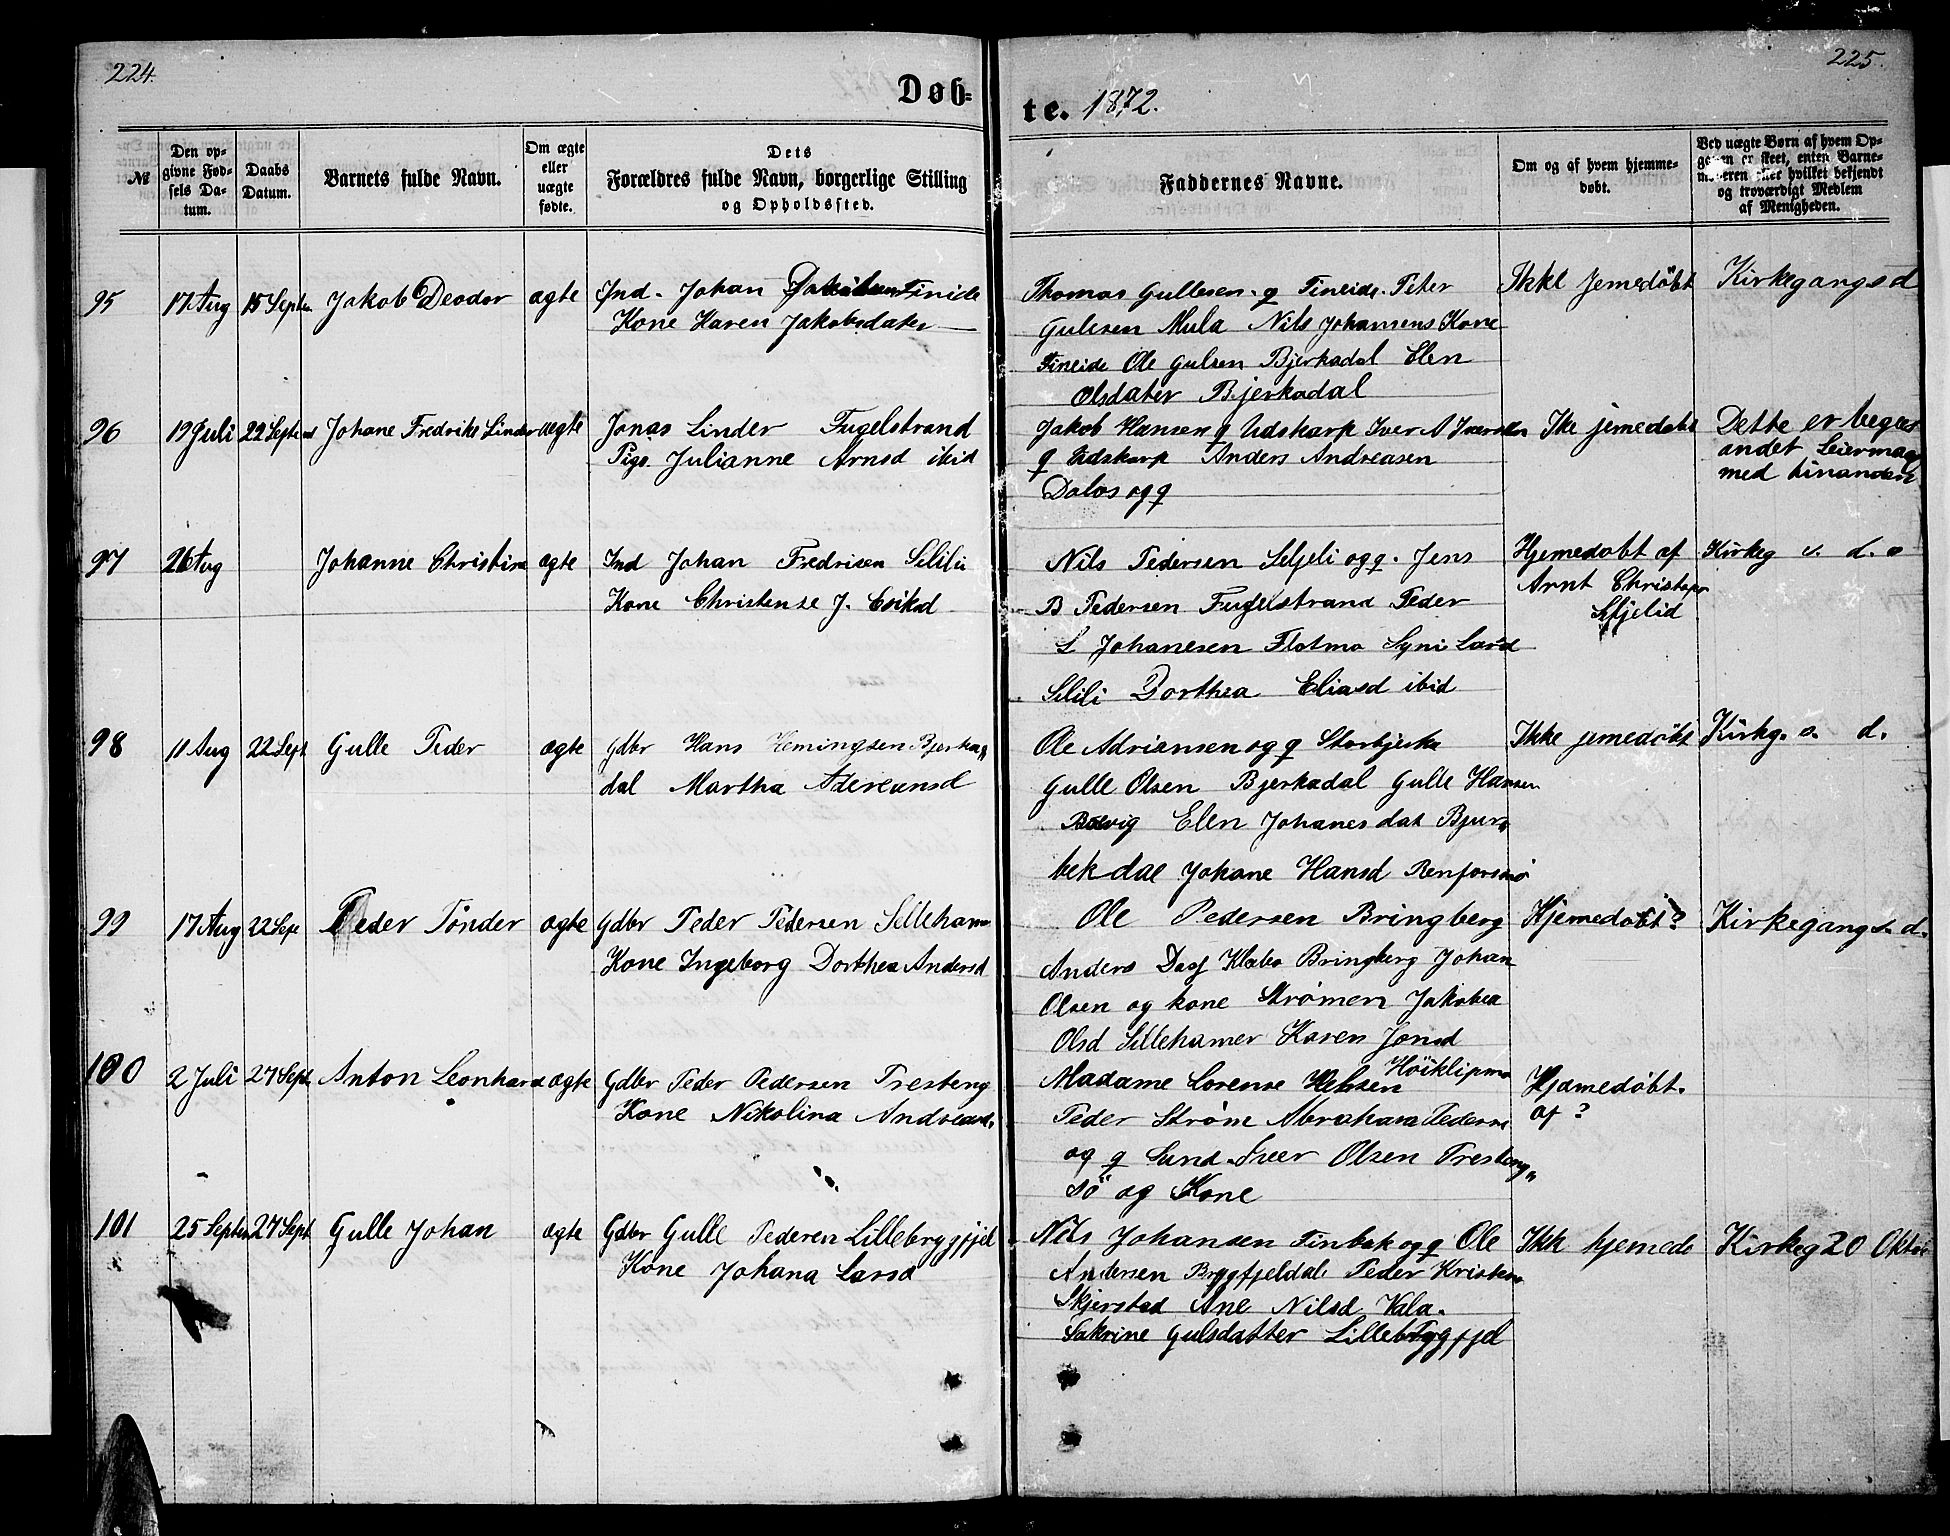 224.
225.
Døb-
te. 1872.
№
Den op-
givne Fød-
sels Da-
tum.
Daabs
Datum.
Barnets fulde Navn.
Om ægte
eller
uægte
fødte.
Dets
Forældres fulde Navn, borgerlige Stilling
og Opholdssted.
Faddernes Navne.
Om og af hvem hjemme-
døbt.
Ved uægte Børn af hvem Op-
gaven er skeet, enten Barne-
moderen eller hvilket bekjendt
og troværdigt Medlem
af Menigheden.
95
17 Aug
15 Septr
Jakob Deodor
ægte
Ind. Johan Finide
Kone Karen Jakobsdater
Thomas Gullesen. q Fineide. Peter
Gulesen Mula Nils Johansens Kone
Fineide Ole Gulsen Bjerkadal Elen
Olsdater Bjerkadal
Ikke jemedøbt
Kirkegang s d
96
19 Juli
22 Septem
Johane Fredrike Linder
uægte
Jonas Linder Fugelstrand
Pige. Julianne Arnsd ibid
Jakob Hansen q Udskarp Iver A Iversen
q Udskarp Anders Andreasen
Dalos og q
Ike jemedøbt
Dette er begges
andet Leiermaal
med hinanden
97
26 Aug
Johanne Christine
ægte
Ind Johan Fredrisen Selili
Kone Christense J. Eriksd
Nils Pedersen Seljeli og q. Jens
B Pedersen Fugelstrand Peder
L Johanesen Flotmo Syni Larsd
Selili Dorthea Eliasd ibid
Hjemedøbt af
Arnt Christofer
Seljelid
Kirkeg s. d.
98
11 Aug
22 Sept
Gulle Peder
ægte
Gdbr Hans Hemingsen Bjerka„
dal Martha Adereansd
Ole Adriansen og q Storbjerka
Gulle Olsen Bjerkadal Gulle Hansen
Bovig Elen Johanes dat Bjur„
bek dal Johane Hansd Renforsmo
Ikke jemedøbt
Kirkg. s. d.
99
17 Aug
22 Sept
Peder Tønder
ægte
Gdbr Peder Pedersen Sellehamr
Kone Ingeborg Dorthea Andersd
Ole Pedersen Bringberg
Anders Dass Klæbo Bringberg Johan
Olsen og kone Strømen Jakobea
Olsd Sellehamer Karen Jonsd
Hjemedøbt?
Kirkegang s. d.
100
2 Juli
27 Sept
Anton Leonhard
ægte
Gdbr Peder Pedersen Presteng
Kone Nikolina Andreasd.
Høiklipmo
Madame Lorense Helsen
Peder Strøm Abraham Pedersn
og q Sund Iver Olsen Presteng„
sø og Kone
Hjæmedøbt.
af ?
101
25 Septem
27 Sept
Gulle Johan
ægte
Gdbr Gulle Pederen Lillebrygfjel
Kone Johana Larsd
Nils Johansen Finbak og q Ole
Andersen Brygfjeldal Peder Kristens
Skjerstad Ane Nilsd Vala.
Sakrine Gulsdatter Lillebrygfjel
Ikk hjemedø
Kirkeg 20 Oktbr